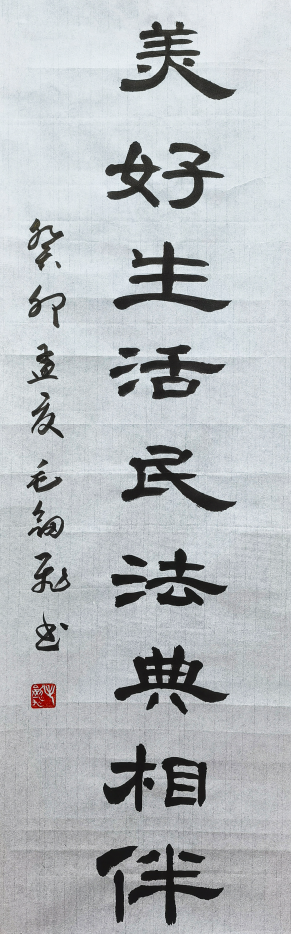 美好生活民法典相伴
癸卯孟夏毛剑飞书